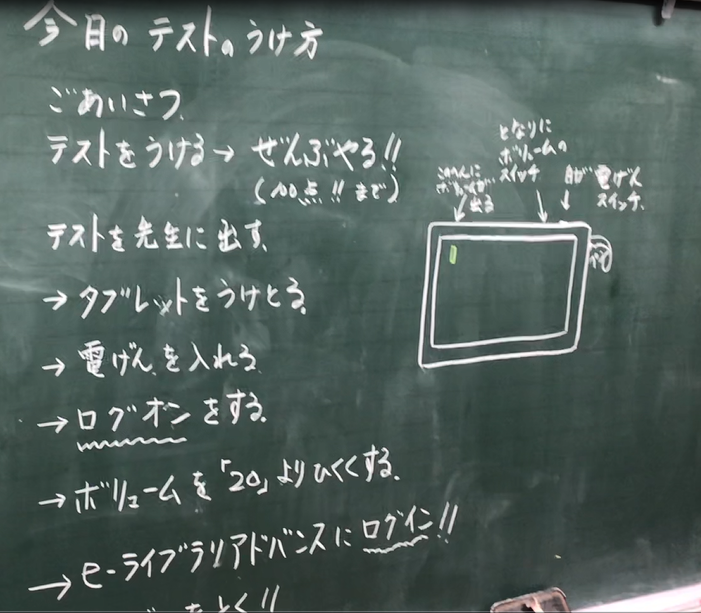 今日のテストのうけ方
ごあいさつ
テストをうける→ ぜんぶやる!!
(100点!!まで)
テストを先生に出す。
→ タブレットをうけとる。
→ 電げんを入れる
→ ログオンをする。
→ ボリュームを「20」よりひくくする。
→ e-ライブラリアドバンスにログイン!!
をとく!!
となりに
ボリュームの
スイッチ
ボリュームが
出る
電げん
スイッチ、